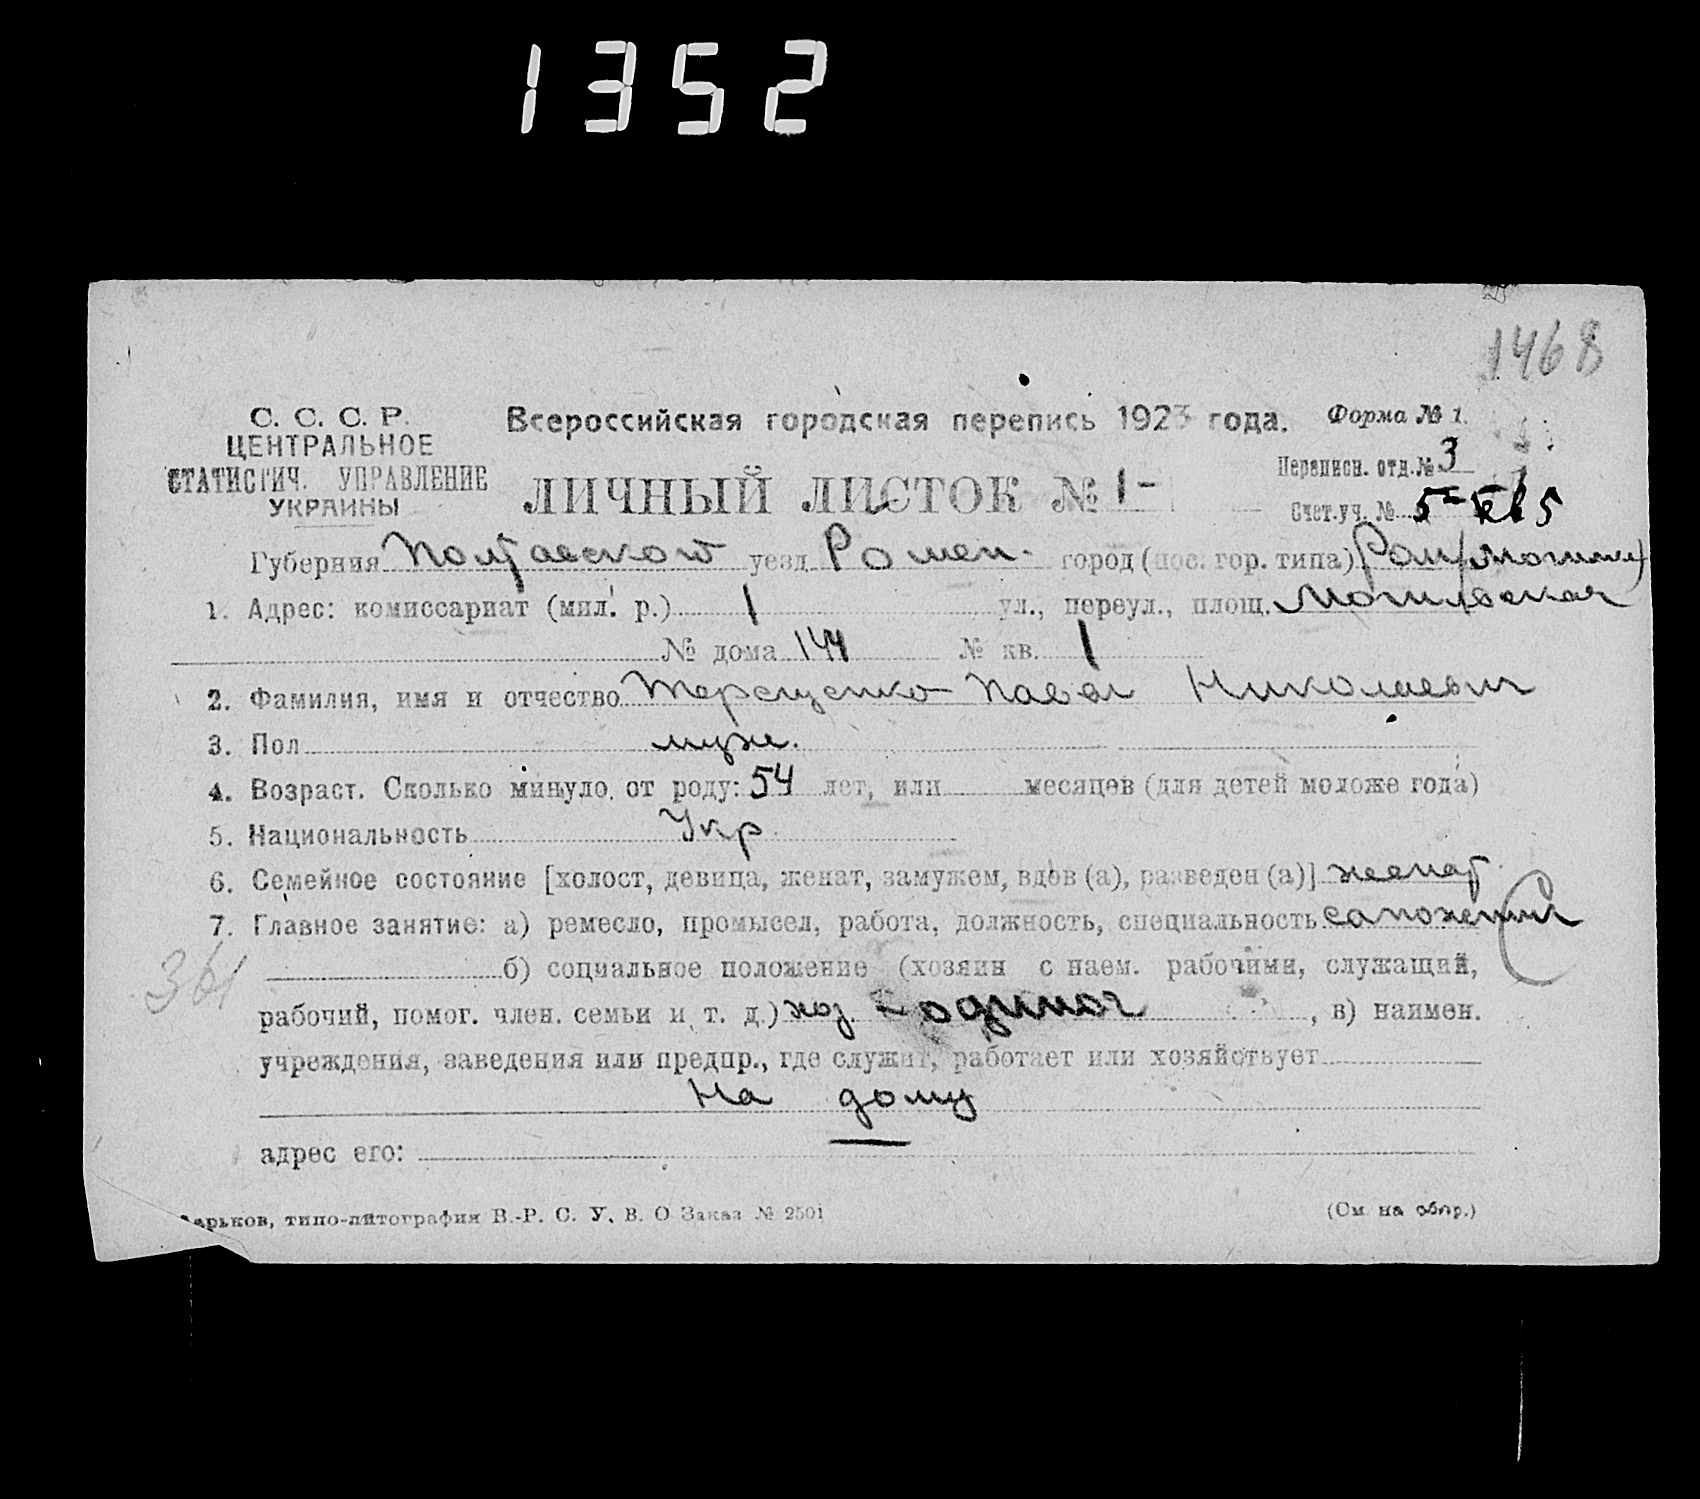 1352
1468
С. С. С. Р.
ЦЕНТРАЛЬНОЕ
СТАТИСТИЧ. УПРАВЛЕНИЕ
УКРАИНЫ
Всероссийская городская перепись 1923 года.
Форма № 1.
ЛИЧНЫЙ ЛИСТОК № 1-
Переписн. отд. № 3
Счет. уч. № 5
Губерния Полтавской уезд Ромен. город (пос. гор. типа)
1. Адрес: комиссариат (мил. р.) 1 ул., переул., площ.
№ дома 144 № кв. 1
2. Фамилия, имя и отчество Терещенко Павел Николаевич
3. Пол муж.
4. Возраст. Сколько минуло от роду: 54 лет, или месяцев (для детей моложе года)
5. Национальность Укр
6. Семейное состояние [холост, девица, женат, замужем, вдов (а), разведен (а)] женат
7. Главное занятие: а) ремесло, промысел, работа, должность, специальность сапожник
361
б) социальное положение (хозяин с наем. рабочими, служащий,
рабочий, помог. член. семьи и т. д.) хоз. - одиноч , в) наимен.
учреждения, заведения или предпр., где служит, работает или хозяйствует
На дому
адрес его:
Харьков, типо-литография В.-Р. С. У. В. О Заказ № 2501
(См. на обор.)